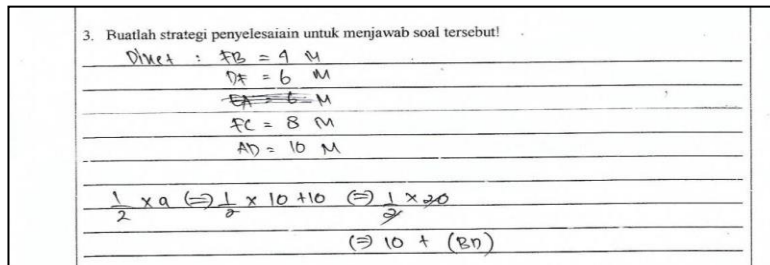 3. Buatlah strategi penyelesaiain untuk menjawab soal tersebut!
Diket : FB = 4 M
DF = 6 M
EA = 6 M
FC = 8 M
AD = 10 M
1/2 x a <=> 1/2 x 10 +10 <=> 1/2 x 20
<=> 10 + (BD)